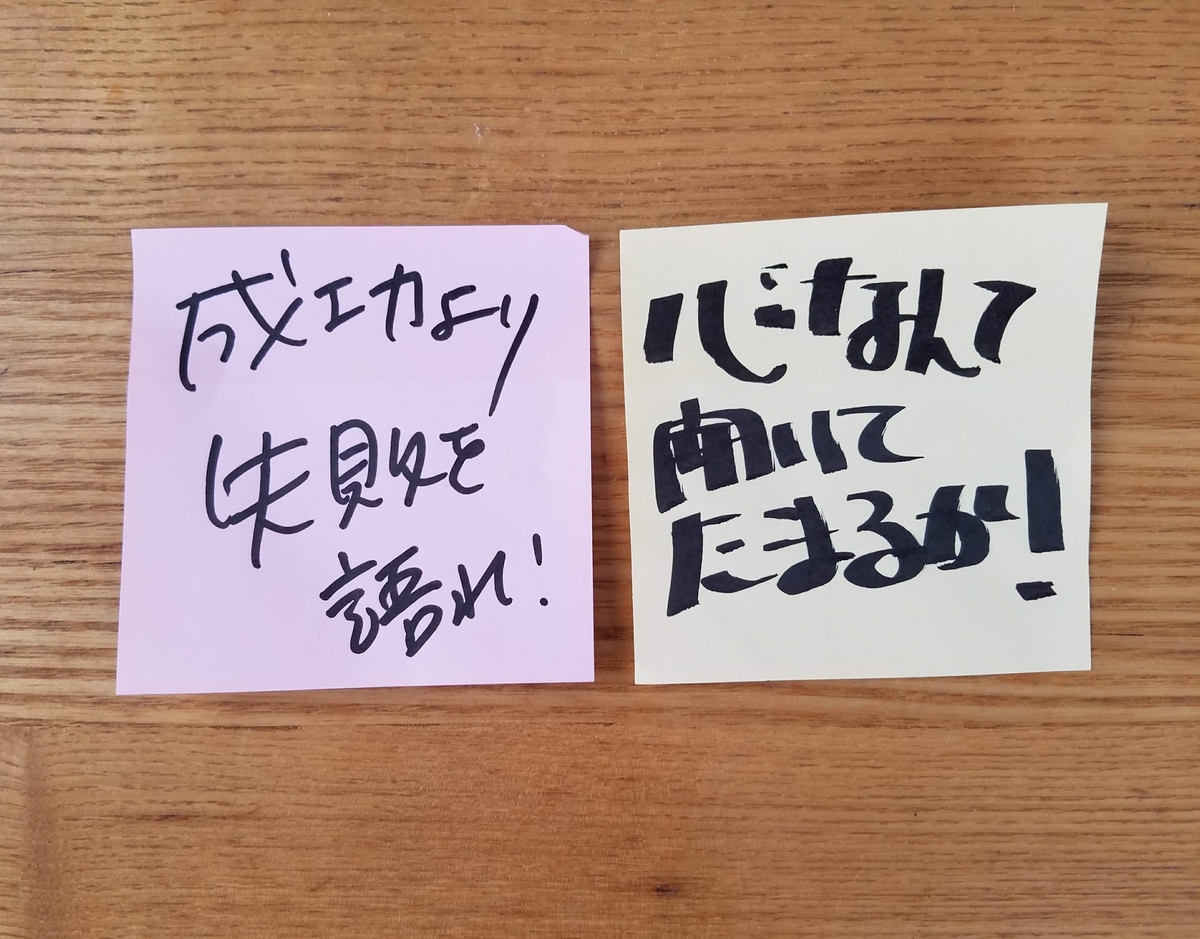 成功より
失敗を
語れ!
心なんて
開いて
たまるか!